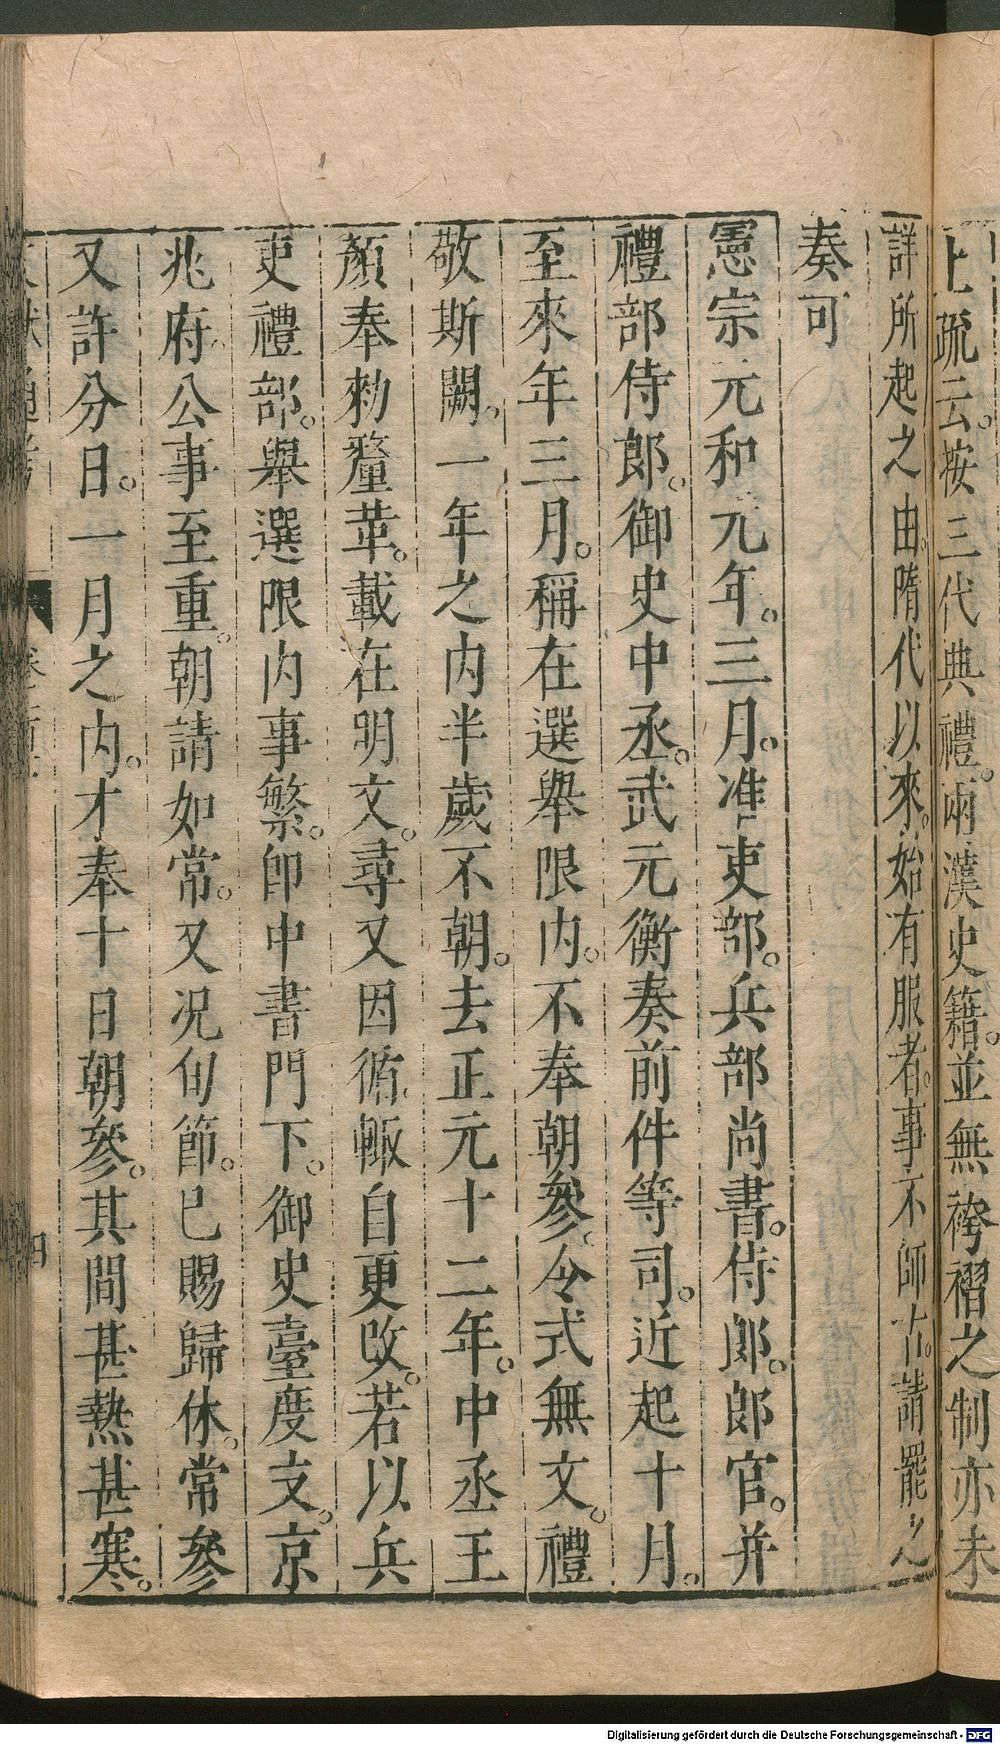 上疏云。按三代典禮。兩漢史籍。並無袴褶之制亦未
詳所起之由。隋代以來。始有服者。事不師古。請罷之
奏可
憲宗元和元年。三月。准吏部。兵部尚書。侍郎。郎官。并
禮部侍郎。御史中丞。武元衡奏前件等司。近起十月。
至來年三月。稱在選舉限内。不奉朝參。令式無文。禮
敬斯闕。一年之内半歲不朝。去正元十二年。中丞王
顏奉勑釐革。載在明文。尋又因循。輙自更改。若以兵
吏禮部。舉選限内事繁。卽中書門下。御史臺度支。京
兆府。公事至重。朝請如常。又况旬節。巳賜歸休。常參
又許分日。一月之内。才奉十日朝參。其間甚熱甚寒。
通考
四
Digitalisierung gefördert durch die Deutsche Forschungsgemeinschaft - DFG